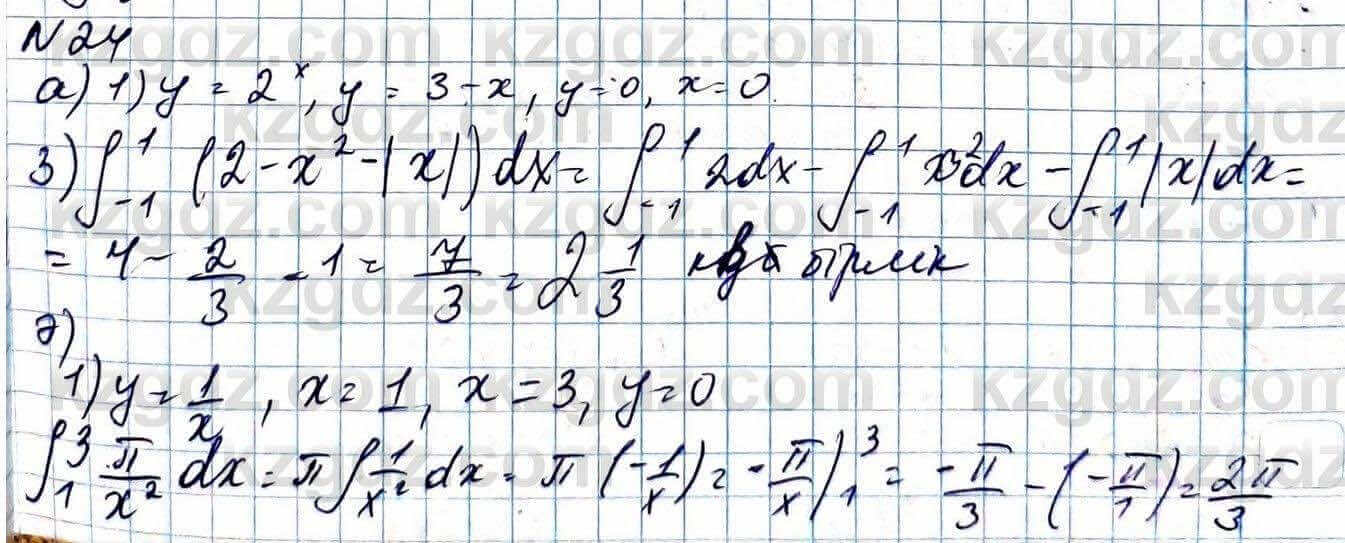 N24
а) 1) y = 2^x, y = 3 - x, y = 0, x = 0.
3) ∫_{-1}^{1} (2 - x² - |x|) dx = ∫_{-1}^{1} 2dx - ∫_{-1}^{1} x²dx - ∫_{-1}^{1} |x|dx =
= 4 - 2/3 - 1 = 7/3 = 2 1/3 бірлік
ә)
1) y = 1/x, x = 1, x = 3, y = 0
∫_1^3 π/x² dx = π ∫ 1/x² dx = π (-1/x) = -π/x |_1^3 = -π/3 - (-π/1) = 2π/3
kzgdz.com